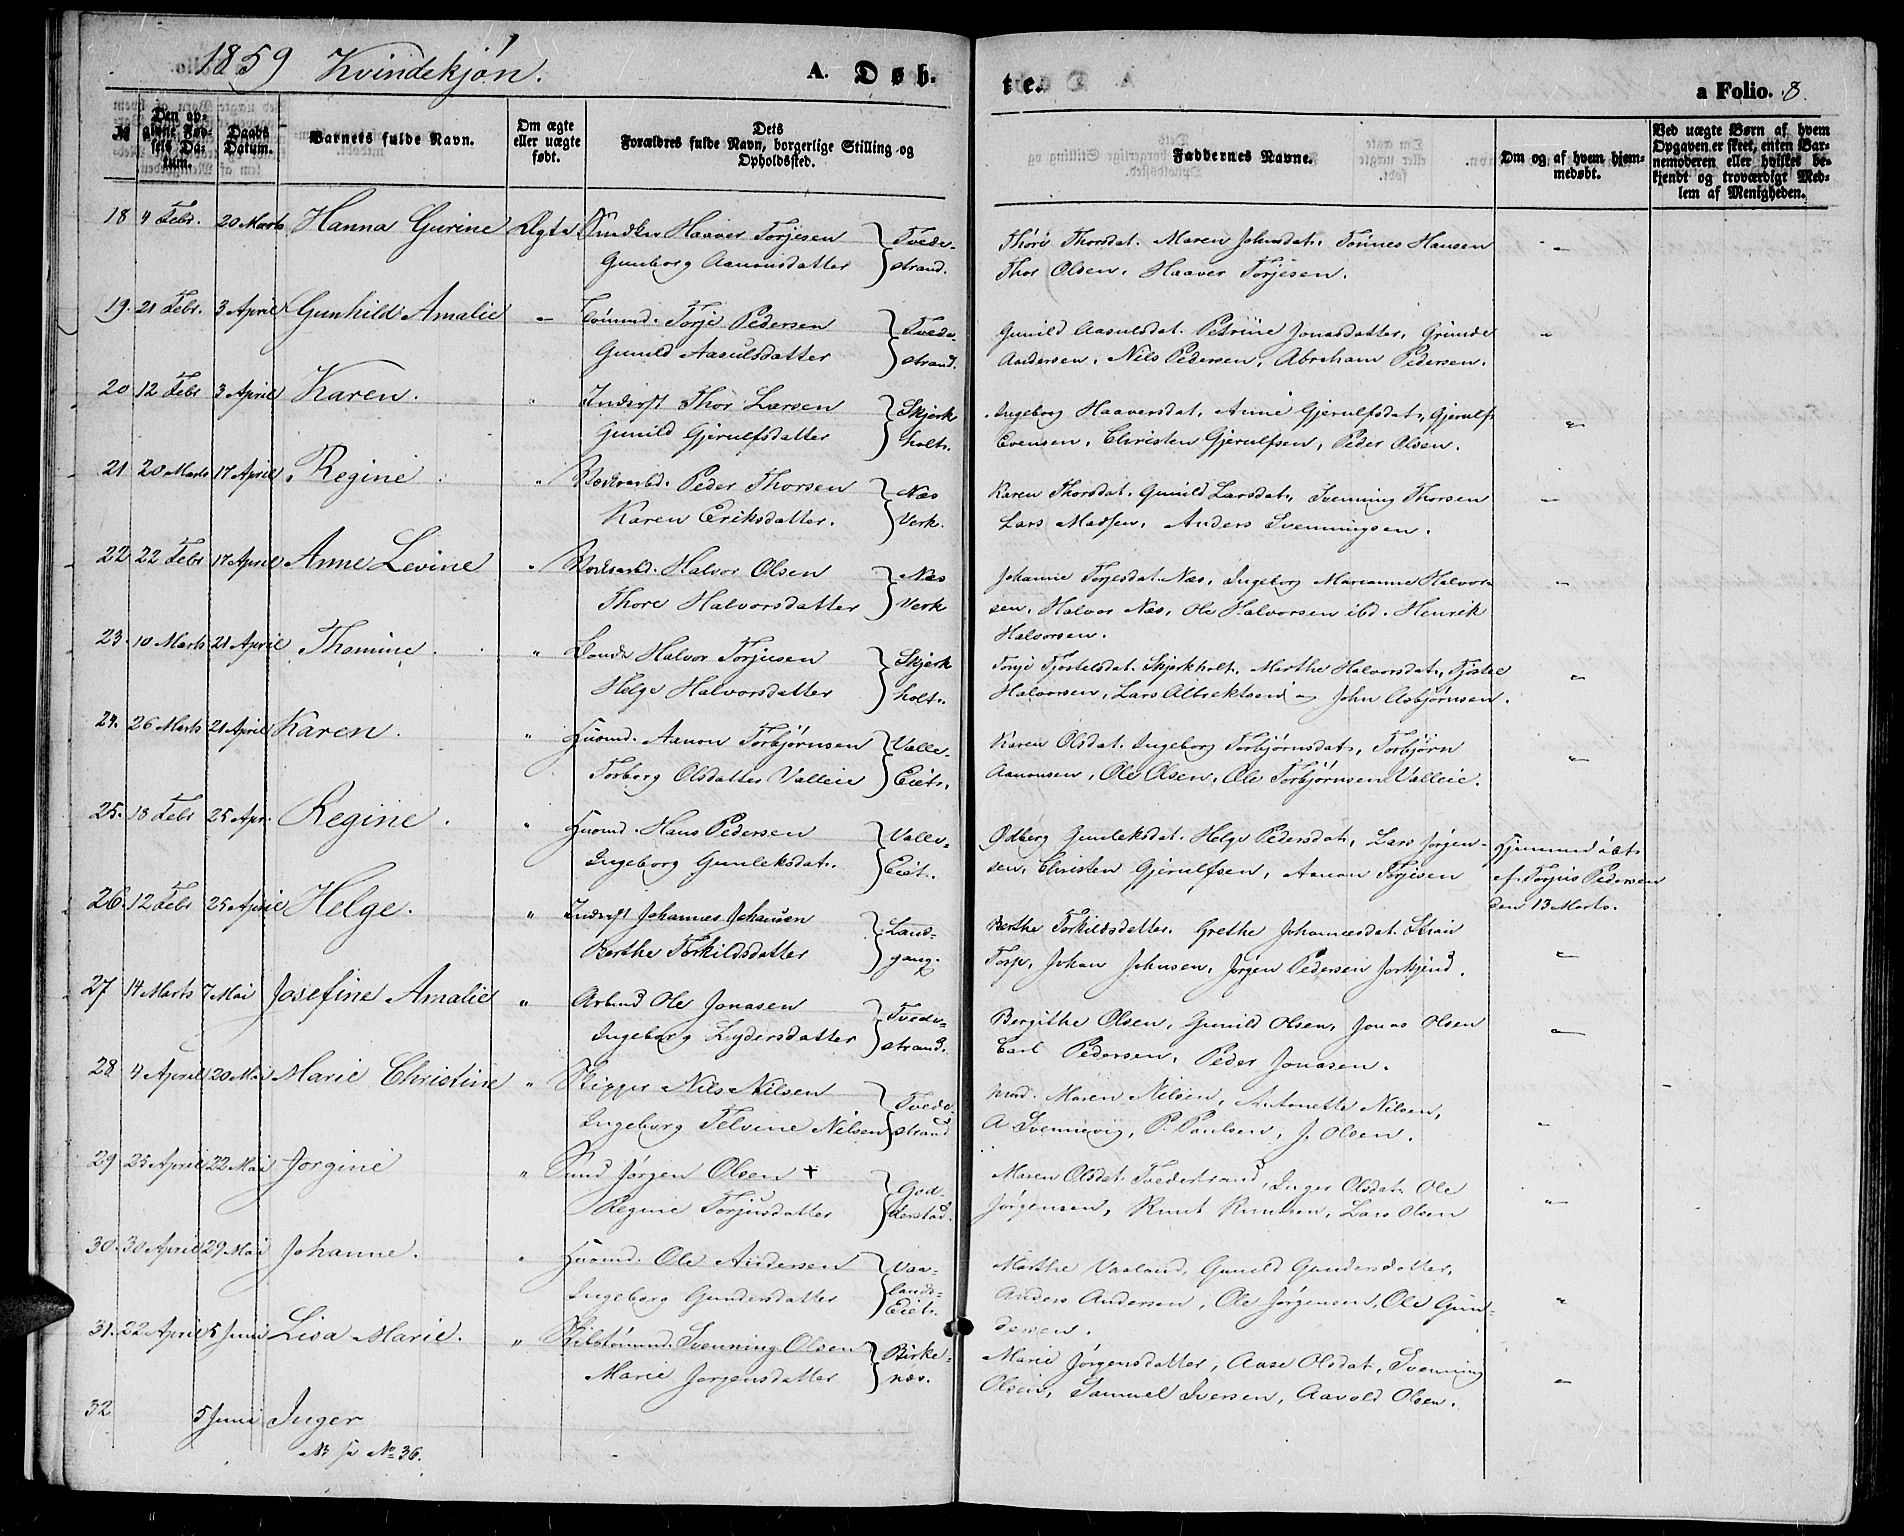 1859 Kvindekjøn. A. Døb-
te. a Folio. 8.
№ Den op-givne Fød-sels Da-tum. Daabs Datum. Barnets fulde Navn. Om ægte eller uægte født. Dets Forældres fulde Navn, borgerlige Stilling og Opholdssted. Faddernes Navne. Om og af hvem hjem-medøbt. Ved uægte Børn af hvem Opgaven er skeet, enten Bar-nemoderen eller hvilket be-kjendt og troværdigt Med-lem af Menigheden.
18 4 Febr. 20 Marts Hanna Gurine Ægte Snedker Haaver Torjesen Tvede-
Gunborg Aanonsdatter strand.
Thore Thorsdat. Maren Johnsdat. Tønnes Hansen "
Thor Olsen. Haaver Torjesen.
19. 21 Febr. 3 April Gunhild Amalie " Torje Pedersen Tvede-
Gunild Aasulsdatter strand.
Gunild Aasulsdat. Petrine Jonasdatter, Grunde "
Andersen, Nils Pedersen, Abraham Pedersen.
20 12 Febr 3 April Karen. " Inderst Thor Larsen Skjerk
Gunild Gjerulfsdatter holt.
Ingeborg Haaversdat, Anne Gjerulfsdat, Gjerulf "
Evensen, Christen Gjerulfsen, Peder Olsen.
21 20 Marts 17 April Regine " Værksarbd. Peder Thorsen Næs
Karen Eriksdatter. Verk.
Karen Thorsdat. Gunild Larsdat, Svenning Thorsen "
Lars Madsen, Anders Svenningsen.
22 22 Febr 17 April Anne Levine " Værksarbd. Halvor Olsen Næs
Thore Halvorsdatter Verk
Johanne Torjesdat. Næs, Ingeborg Marianne Halvor- "
sen, Halvor Næs, Ole Halvorsen ibd. Henrik
Halvorsen.
23. 10 Marts 21 April Thomine. " Bonde Halvor Torjusen Skjerk
Helge Halvorsdatter holt.
Torje Tjostelsdat. Skjerkholt, Marthe Halvorsdat, Tjøstel "
Halvorsen, Lars Albrektsen John Asbjørnsen.
24. 26 Marts 21 April Karen. " Huusmd. Aanon Torbjørnsen Valle-
Torborg Olsdatter Valleie Eiet.
Karen Olsdat. Ingeborg Torbjørnsdat, Torbjørn "
Aanonsen, Ole Olsen, Ole Torbjørnsen Valleie.
25. 18 Febr 25 Apr. Regine. " Huusmd. Hans Pedersen Valle-
Ingeborg Gunleksdat. Eiet.
Odberg Gunleksdat. Helge Pedersdat, Lars Jørgen- Hjemmedøbt
sen, Christen Gjerulfsen, Aanon Torjesen af Torjus Pedersen
den 13 Marts.
26. 12 Febr 25 April Helge. " Inderst Johannes Johansen Land-
Berthe Torkildsdatter gang.
Berthe Torkildsdatter. Grethe Johannesdat. "
Torp, Johan Johnsen, Jørgen Pedersen
27 14 Marts 7 Mai Josefine Amalie " Arbmd Ole Jonasen Tvede-
Ingeborg Lydersdatter strand.
Bergithe Olsen, Gunild Olsen, Jonas Olsen "
Carl Pedersen, Peder Jonasen.
28 4 April 20 Mai Marie Christine " Skipper Nils Nilsen Tvede-
Ingeborg Telvine Nilsen strand
Mad. Maren Nilsen, Antonette Nilsen, "
A Svennevig, P. Paulsen, J. Olsen.
29 25 April 22 Mai Jørgine " Jørgen Olsen + God-
Regine Torjusdatter derstad.
Maren Olsdat Tvedestrand, Inger Olsdat. Ole "
Jørgensen, Knut Knudsen, Lars Olsen
30. 30 April 29 Mai Johanne. " Huusmd. Ole Andersen Vaa-
Ingeborg Gundersdatter lands-
Eiet.
Marthe Vaaland, Gunild Gundersdatter, "
Anders Andersen, Ole Jørgensen, Ole Gun-
dersen.
31. 22 April 5 Juni Lisa Marie. " Svenning Olsen Birke-
Marie Jørgensdatter næs.
Marie Jørgensdatter, Aase Olsdat, Svenning "
Olsen, Samuel Iversen, Aavold Olsen.
32 5 Juni Inger
No 36.